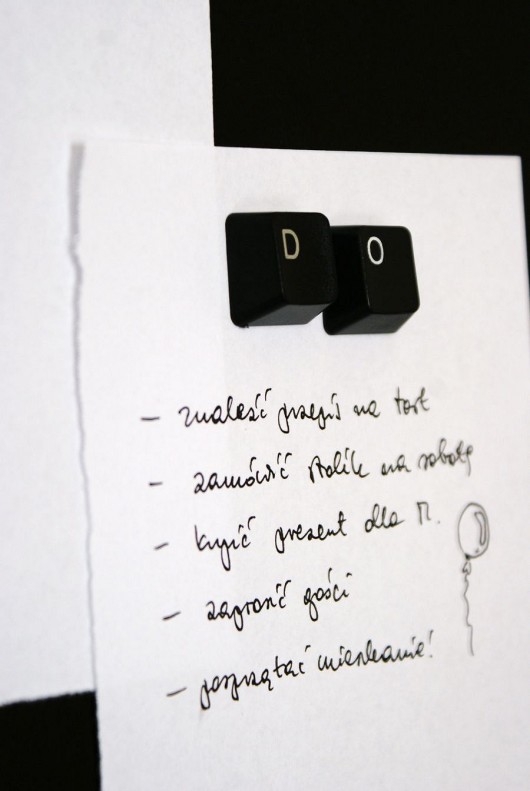 D O
- znaleźć przepis na tort
- zamówić stolik na sobotę
- kupić prezent dla M.
- zaprosić gości
- posprzątać mieszkanie!